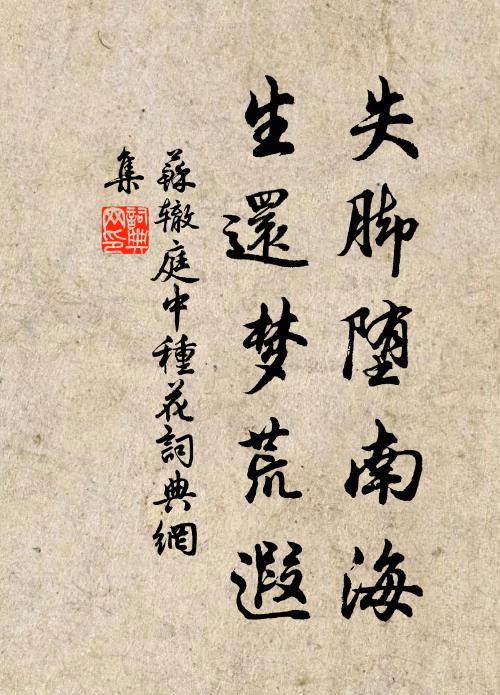 失脚堕南海
生還梦荒遐
蘇辙庭中種花詞典網
集
詞典
网印